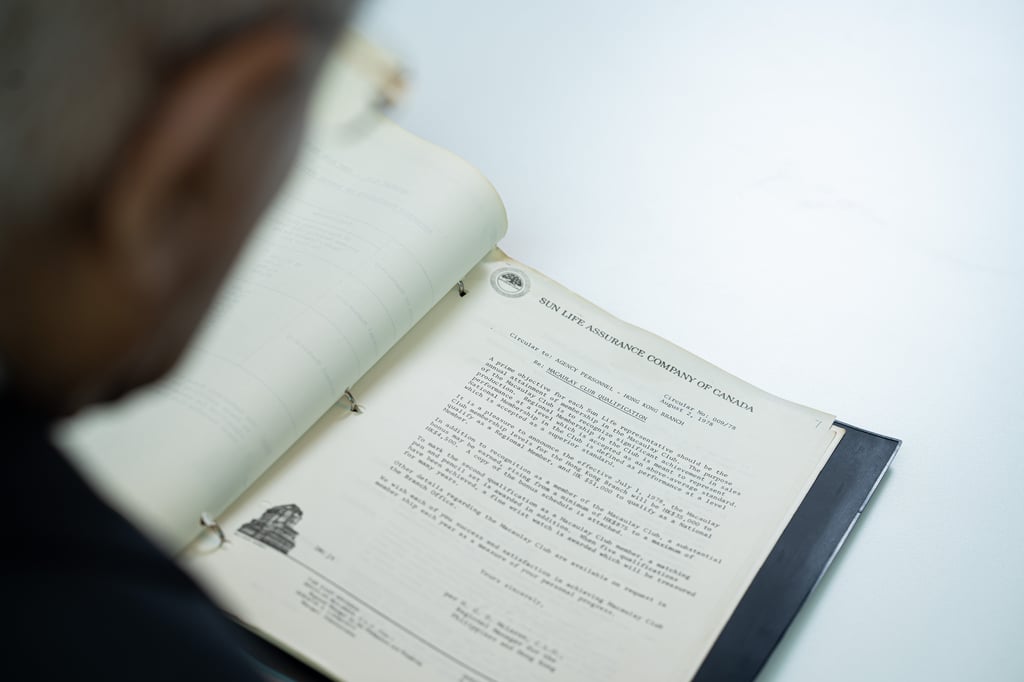 SUN LIFE ASSURANCE COMPANY OF CANADA
Circular No. 009/78
August 2, 1978
Circular to: AGENCY PERSONNEL - HONG KONG BRANCH
Re: MACAULAY CLUB QUALIFICATION
A prime objective for each Sun Life representative should be the
annual attainment of membership in the Macaulay Club. The purpose
of the Macaulay Club is to recognize significant achievement in sales
production. Regional Membership is meant to represent
performance at a level which is accepted as an above-average standard.
National Membership in the Club is defined as performance at a level
which is accepted as a superior standard.
It is a pleasure to announce the effective July 1, 1978, the Macaulay
Club membership levels for the Hong Kong Branch will be HK$35,000 to
qualify as a Regional Member, and HK $51,000 to qualify as a National
Member.
In addition to recognition as a member of the Macaulay Club, a substantial
bonus may be earned rising from a minimum of HK$875 to a maximum of
HK$4,500. A copy of the bonus schedule is attached.
To mark the second qualification as a Macaulay Club member, a matching
pen and pencil set is awarded in addition. When five qualifications
have been achieved, a fine wrist watch is awarded which will be treasured
for many years.
Other details regarding the Macaulay Club are available on request in
the Branch Office.
We wish each of you success and satisfaction in achieving Macaulay Club
membership each year as a measure of your personal progress.
Yours sincerely,
Regional Manager for the
Philippines and Hong Kong